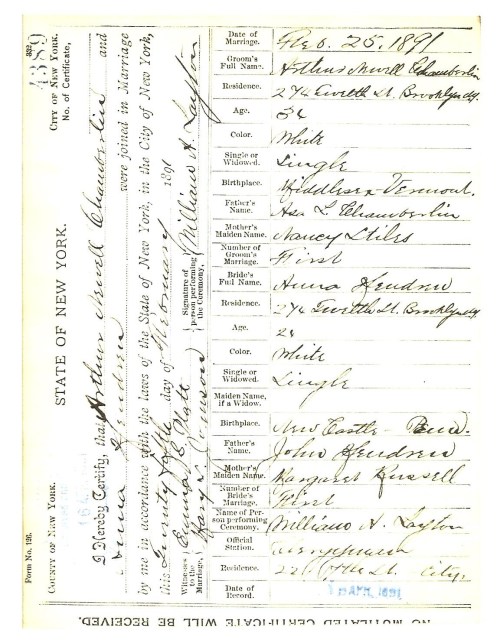 Form No. 126.
COUNTY OF NEW YORK.
STATE OF NEW YORK.
4389
CITY OF NEW YORK.
No. of Certificate,
I Hereby Certify, that Arthur Newell Chamberlin and
Anna Hendren were joined in Marriage
by me in accordance with the laws of the State of New York, in the City of New York,
this Twenty fifth day of February 1891
Witnesses to the Marriage,
Signature of person performing the Ceremony,
William A. Layton
Date of Marriage. Feb. 25. 1891
Groom's Full Name. Arthur Newell Chamberlin
Residence. St. Brooklyn
Age.
Color. White
Single or Widowed. Single
Birthplace. Middlesex Vermont.
Father's Name. Asa L. Chamberlin
Mother's Maiden Name. Nancy Stiles
Number of Groom's Marriage. First
Bride's Full Name. Anna Hendren
Residence. St. Brooklyn
Age.
Color. White
Single or Widowed. Single
Maiden Name, if a Widow.
Birthplace. New Castle - Penn.
Father's Name. John Hendren
Mother's Maiden Name. Margaret Russell
Number of Bride's Marriage. First
Name of Person performing Ceremony. William A. Layton
Official Station. Clergyman
Residence. St. City.
Date of Record. 1891
NO MUTILATED CERTIFICATE WILL BE RECEIVED.